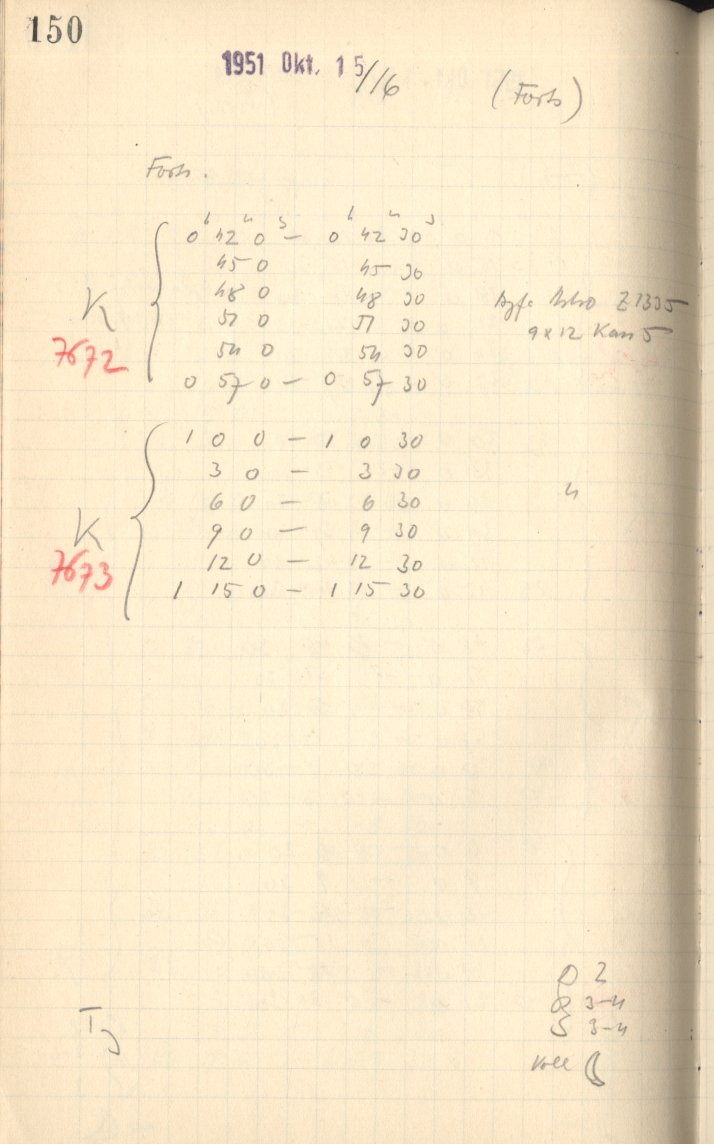 150
1951 Okt. 15/16
(Forts)
Forts.
h m s h m s
0 42 0 – 0 42 30
45 0 45 30
48 0 48 30
51 0 51 30
54 0 54 30
0 57 0 – 0 57 30
K
7672
Agfa Z1335
9x12 Kass 5
1 0 0 – 1 0 30
3 0 – 3 30
6 0 – 6 30
9 0 – 9 30
12 0 – 12 30
1 15 0 – 1 15 30
K
7673
"
D 2
R 3-4
S 3-4
Voll